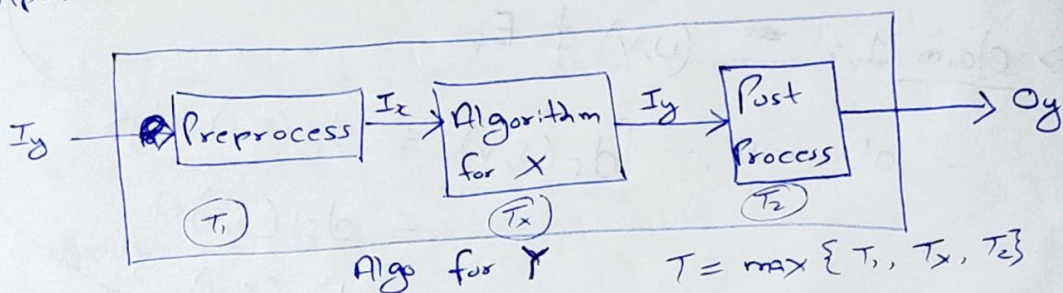 I_y Preprocess I_x Algorithm for X I_y Post Process O_y
T_1 T_x T_2
Algo for Y T = max { T_1, T_x, T_2}